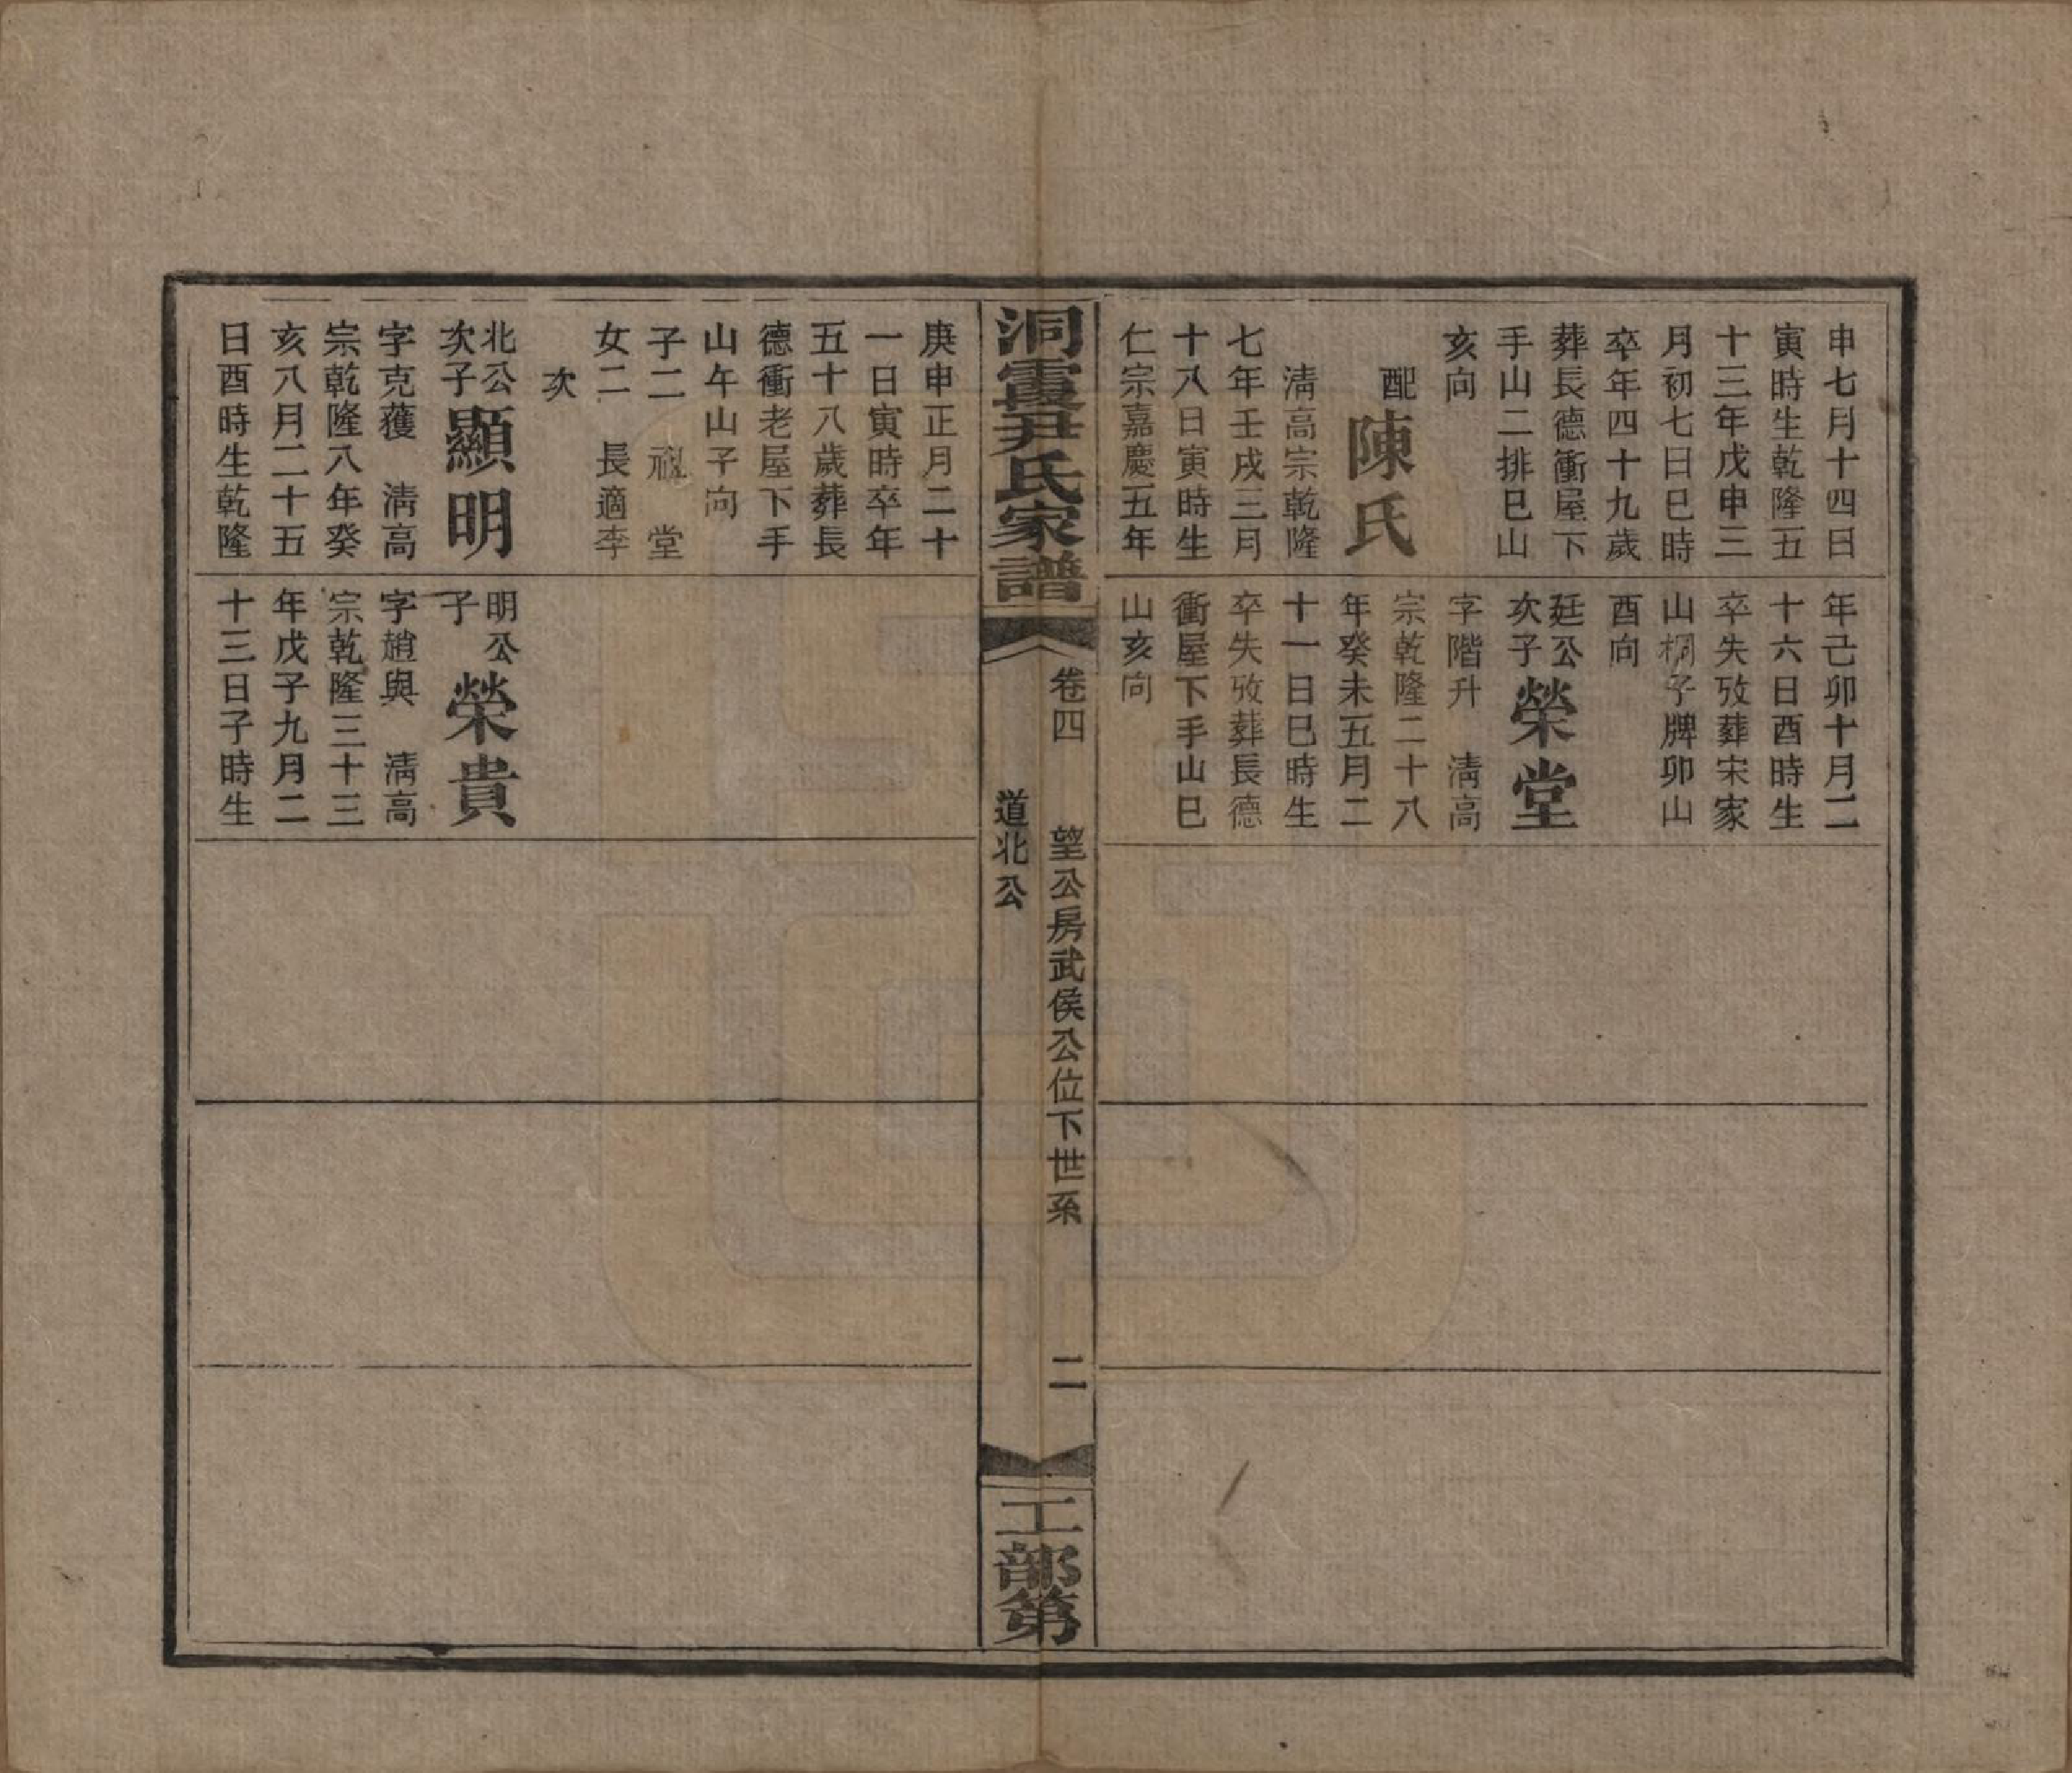 申七月十四日
寅時生乾隆五
十三年戊申三
月初七日巳時
卒年四十九歲
葬長德衝屋下
手山二排巳山
亥向
配陳氏
淸高宗乾隆
七年壬戌三月
十八日寅時生
仁宗嘉慶五年
年己卯十月二
十六日酉時生
卒失攷葬宋家
山桐子牌卯山
酉向
廷公次子榮堂
字階升 淸高
宗乾隆二十八
年癸未五月二
十一日巳時生
卒失攷葬長德
衝屋下手山巳
山亥向
洞霞尹氏家譜
卷四 望公房武侯公位下世系 二
道北公
工部第
庚申正月二十
一日寅時卒年
五十八歲葬長
德衝老屋下手
山午山子向
子二 堂
女二 長適李
次
北公次子顯明
字克獲 淸高
宗乾隆八年癸
亥八月二十五
日酉時生乾隆
明公子榮貴
字趙與 淸高
宗乾隆三十三
年戊子九月二
十三日子時生